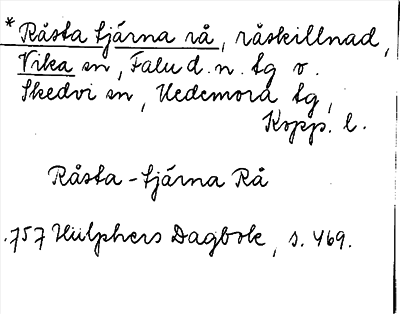 * Råsta tjärna rå, råskillnad,
Vika sn, Falu d. n. tg o.
Skedvi sn, Hedemora tg,
Kopp. l.
Råsta-tjärna Rå
.757 Hülphers Dagbok, s. 469.